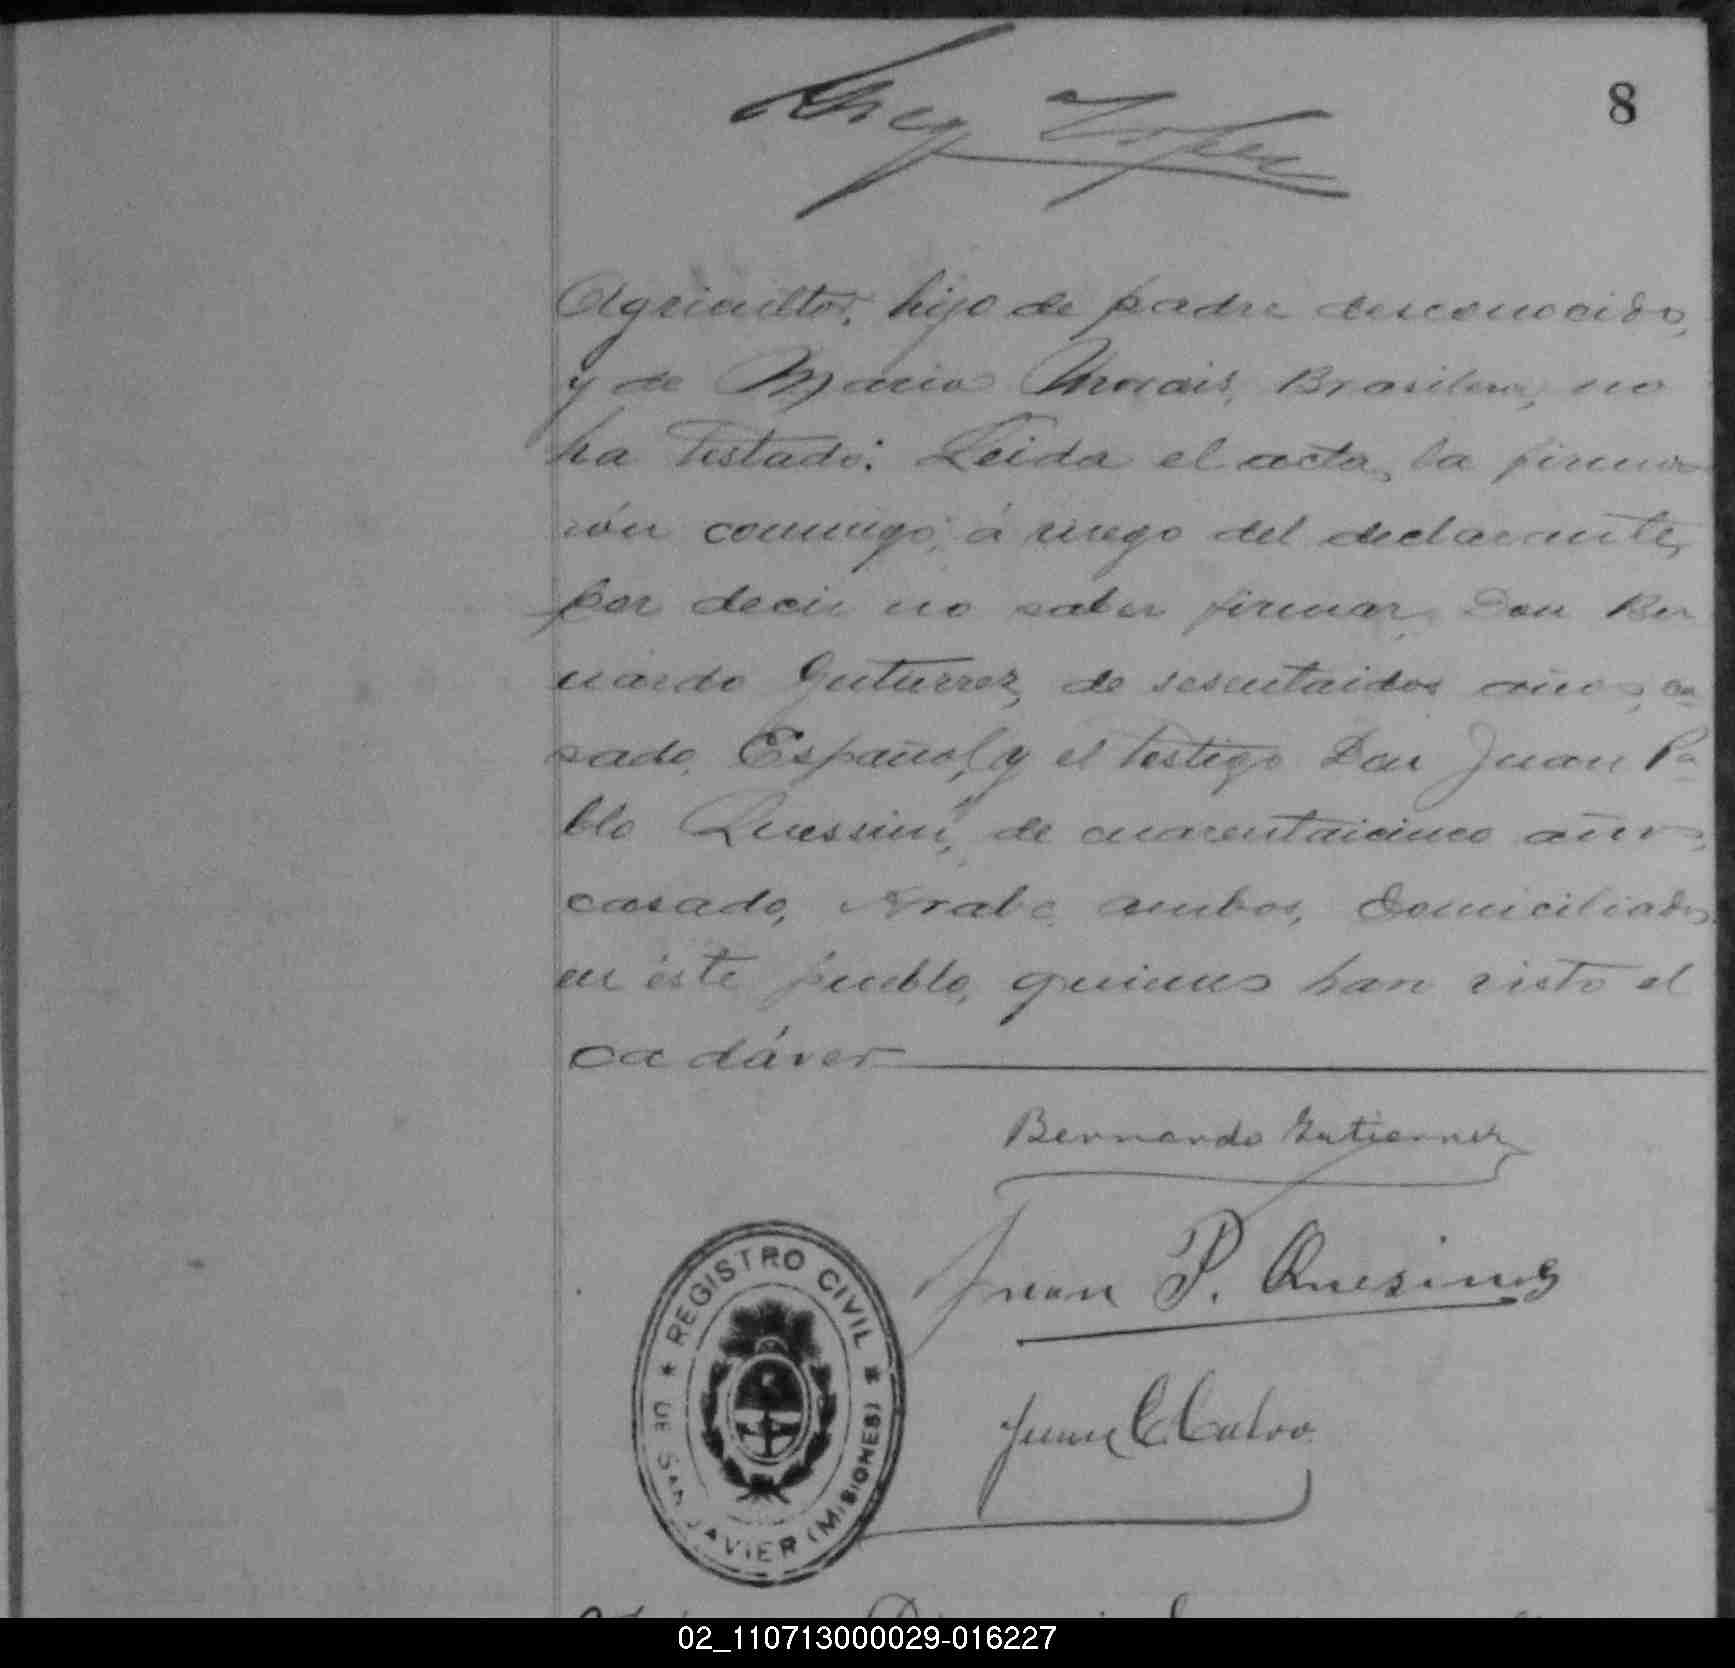 8
Agricultor, hijo de padre desconocido,
y de Maria Morais, Brasilera, no
ha testado: Leida el acta, la firma-
rón conmigo, á ruego del declarante,
por decir no saber firmar, Don Ber
nardo Gutierrez, de sesentaidos años, ca-
sado, Español, y el testigo Don Juan Pa-
blo Quessini, de cuarentaicinco años,
casado, Arabe, ambos, domiciliados
en éste pueblo, quienes han visto el
cadáver
Bernardo Gutierrez
Juan P.
Juan C. Calvo
REGISTRO CIVIL
DE SAN JAVIER (MISIONES)
02_110713000029-016227